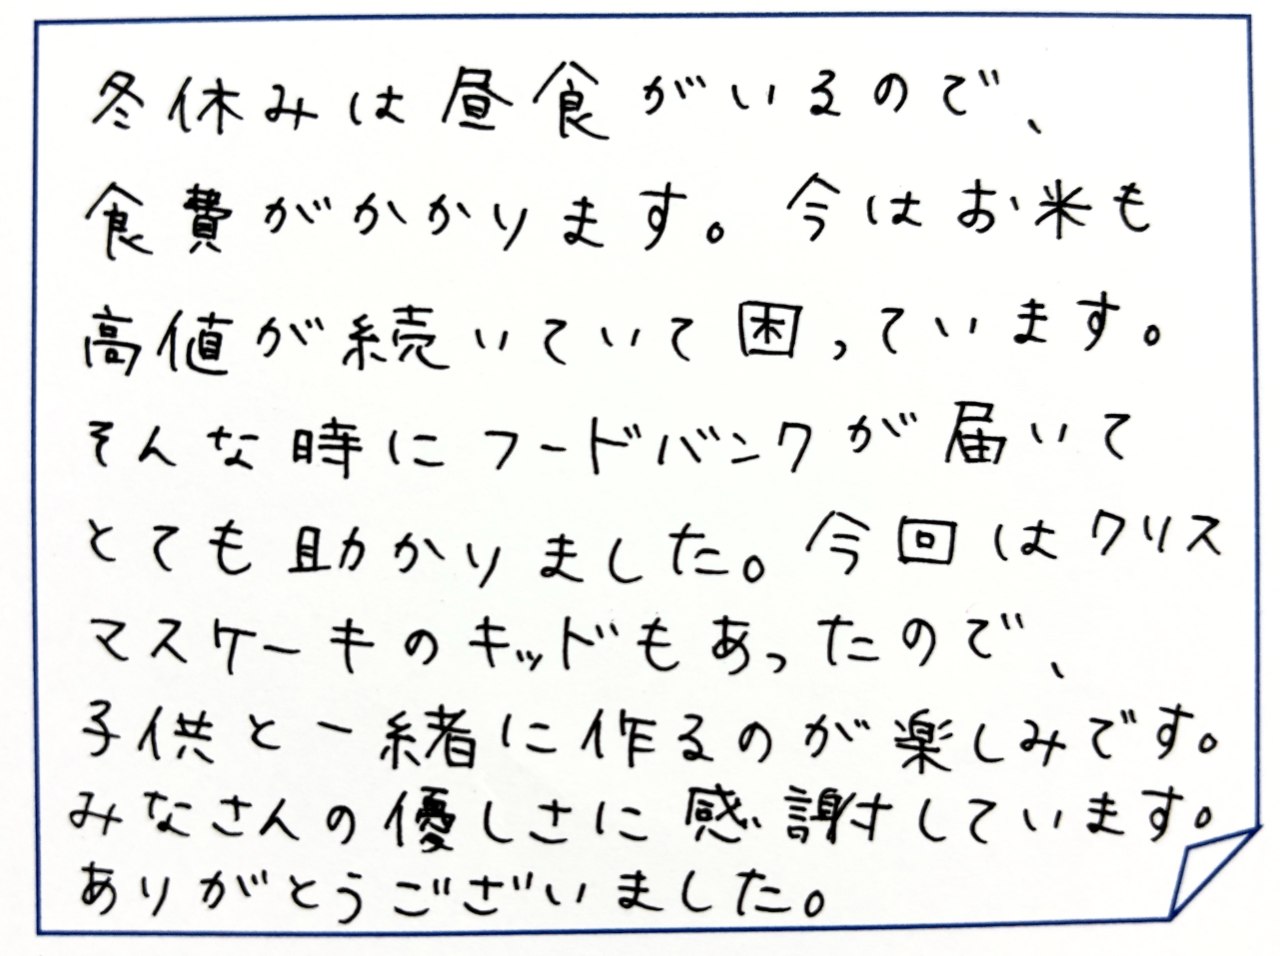 冬休みは昼食がいるので、
食費がかかります。今はお米も
高値が続いていて困っています。
そんな時にフードバンクが届いて
とても助かりました。今回はクリス
マスケーキのキッドもあったので、
子供と一緒に作るのが楽しみです。
みなさんの優しさに感謝しています。
ありがとうございました。